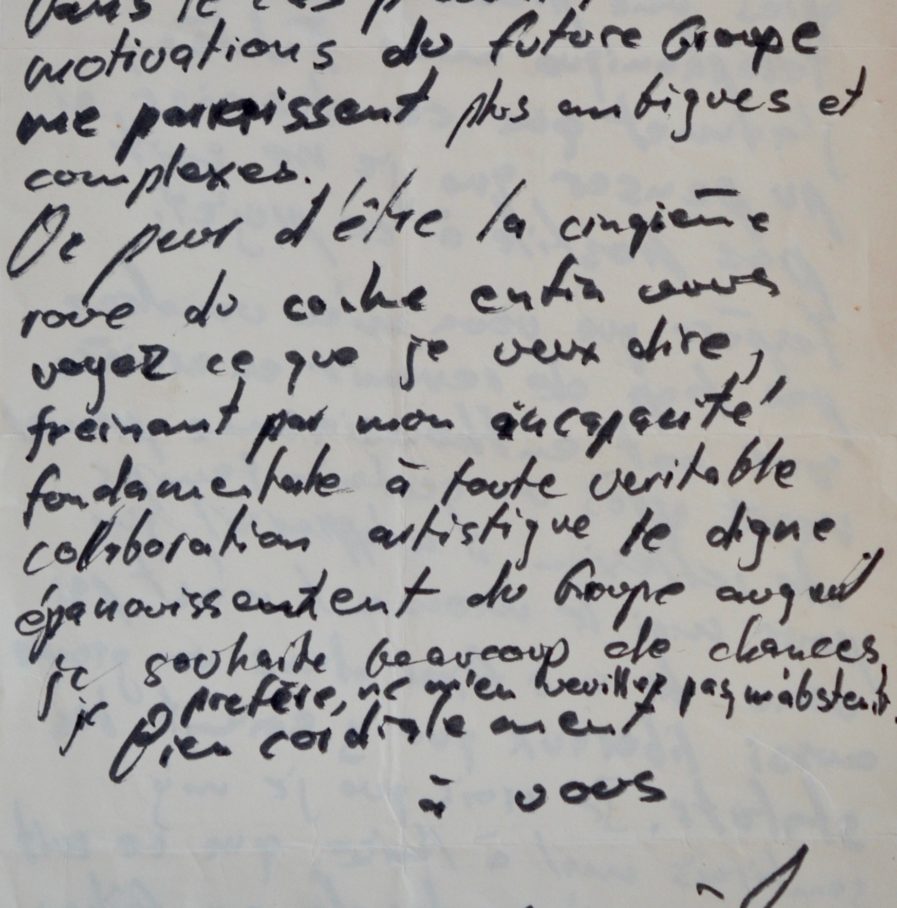 Dans le cas
motivations du future Groupe
me parraissent plus ambigues et
complexes.
De peur d'être la cinqième
roue du coche enfin vous
voyez ce que je veux dire,
freinant par mon incapacité
fondamentale à toute veritable
collaboration artistique le digne
épanouissentent du Groupe auquel
je souhaite beaucoup de chances,
je prefère, ne m'en veuillez pas, m'abstenir.
Bien cordialement
à vous